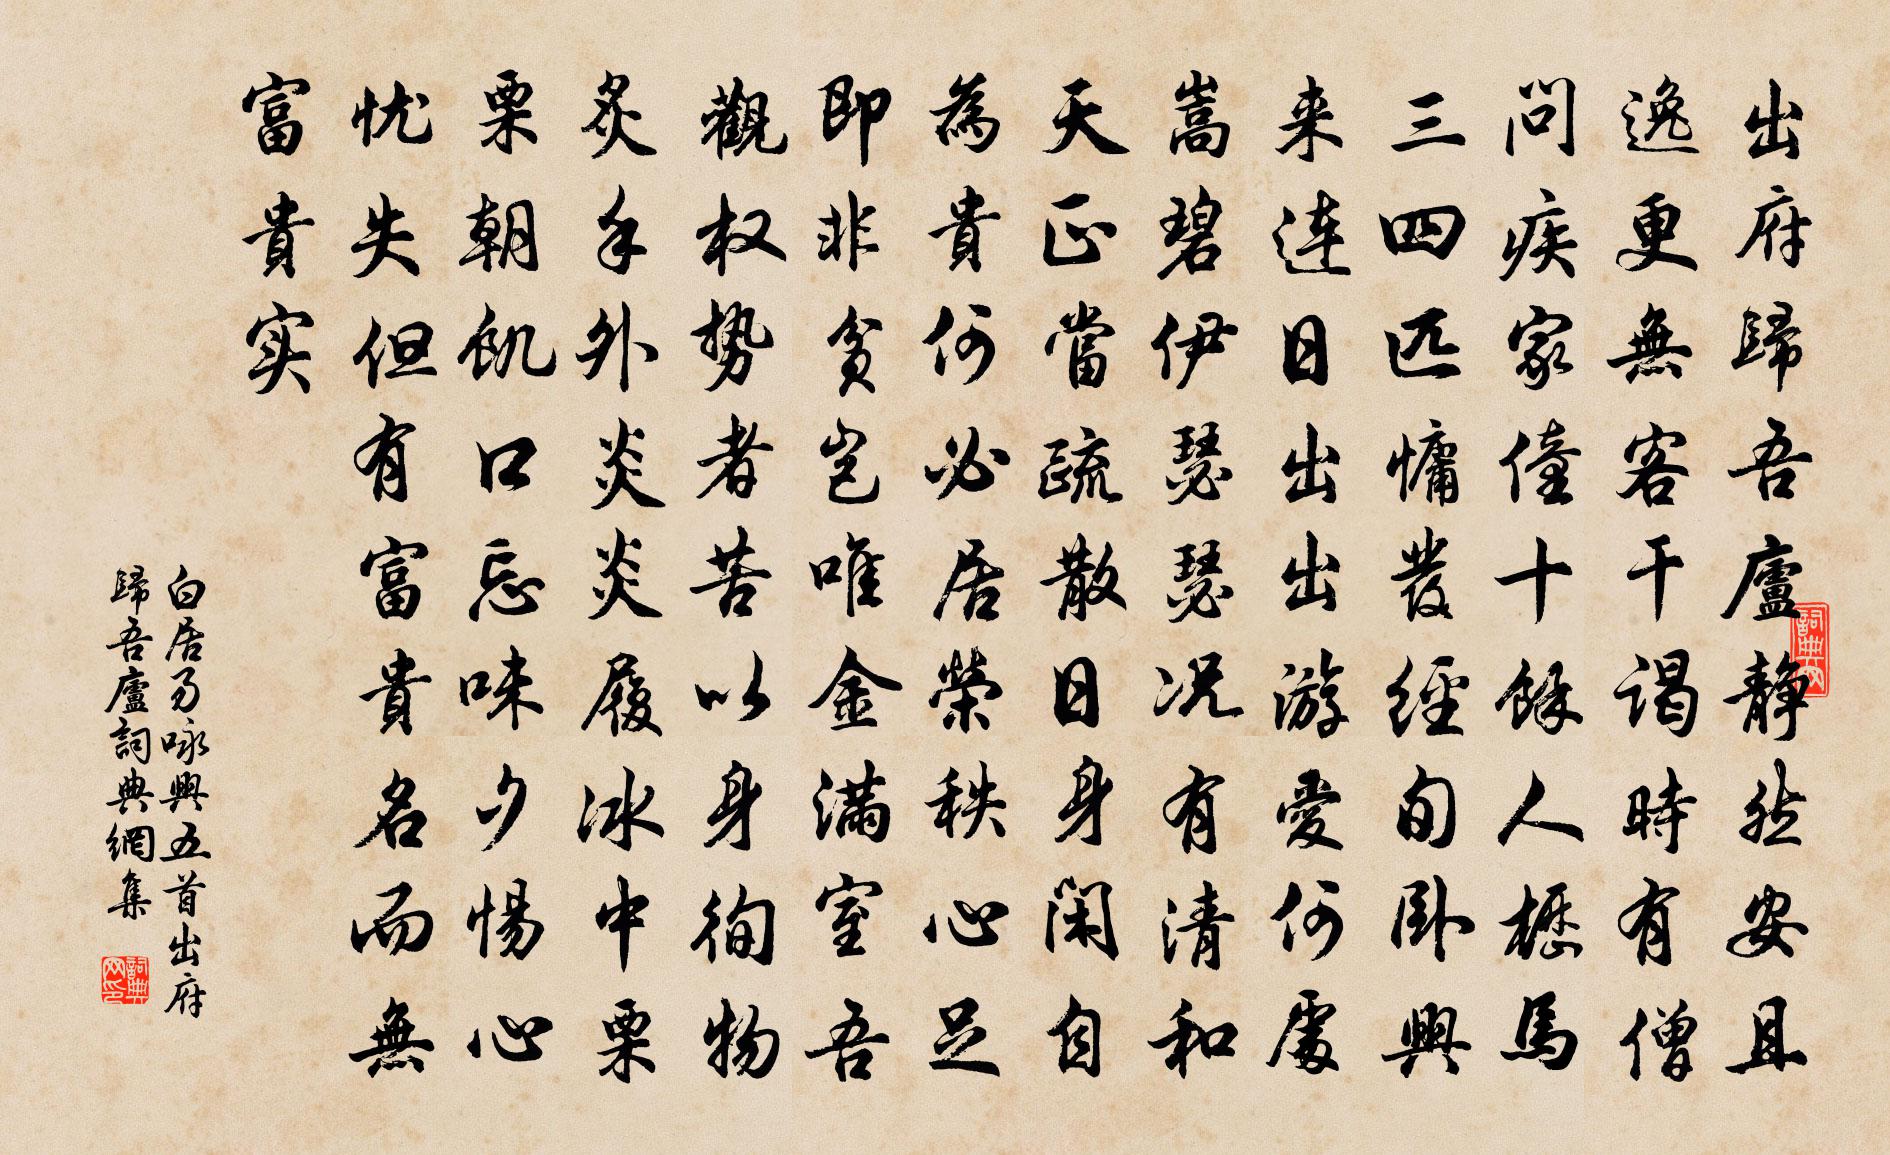 出府歸吾廬靜然安且
逸更無客干謁時有僧
問疾家僮十餘人櫪馬
三四匹慵發經旬卧興
来連日出出游愛何處
嵩碧伊瑟瑟况有清和
天正當疏散日身閑自
為貴何必居榮秩心足
即非貧豈唯金滿室吾
觀权势者苦以身徇物
炙手外炎炎履冰中栗
栗朝飢口忘味夕惕心
忧失但有富貴名而無
富貴实
白居易咏興五首出府
歸吾廬詞典網集
詞典网
詞典网印